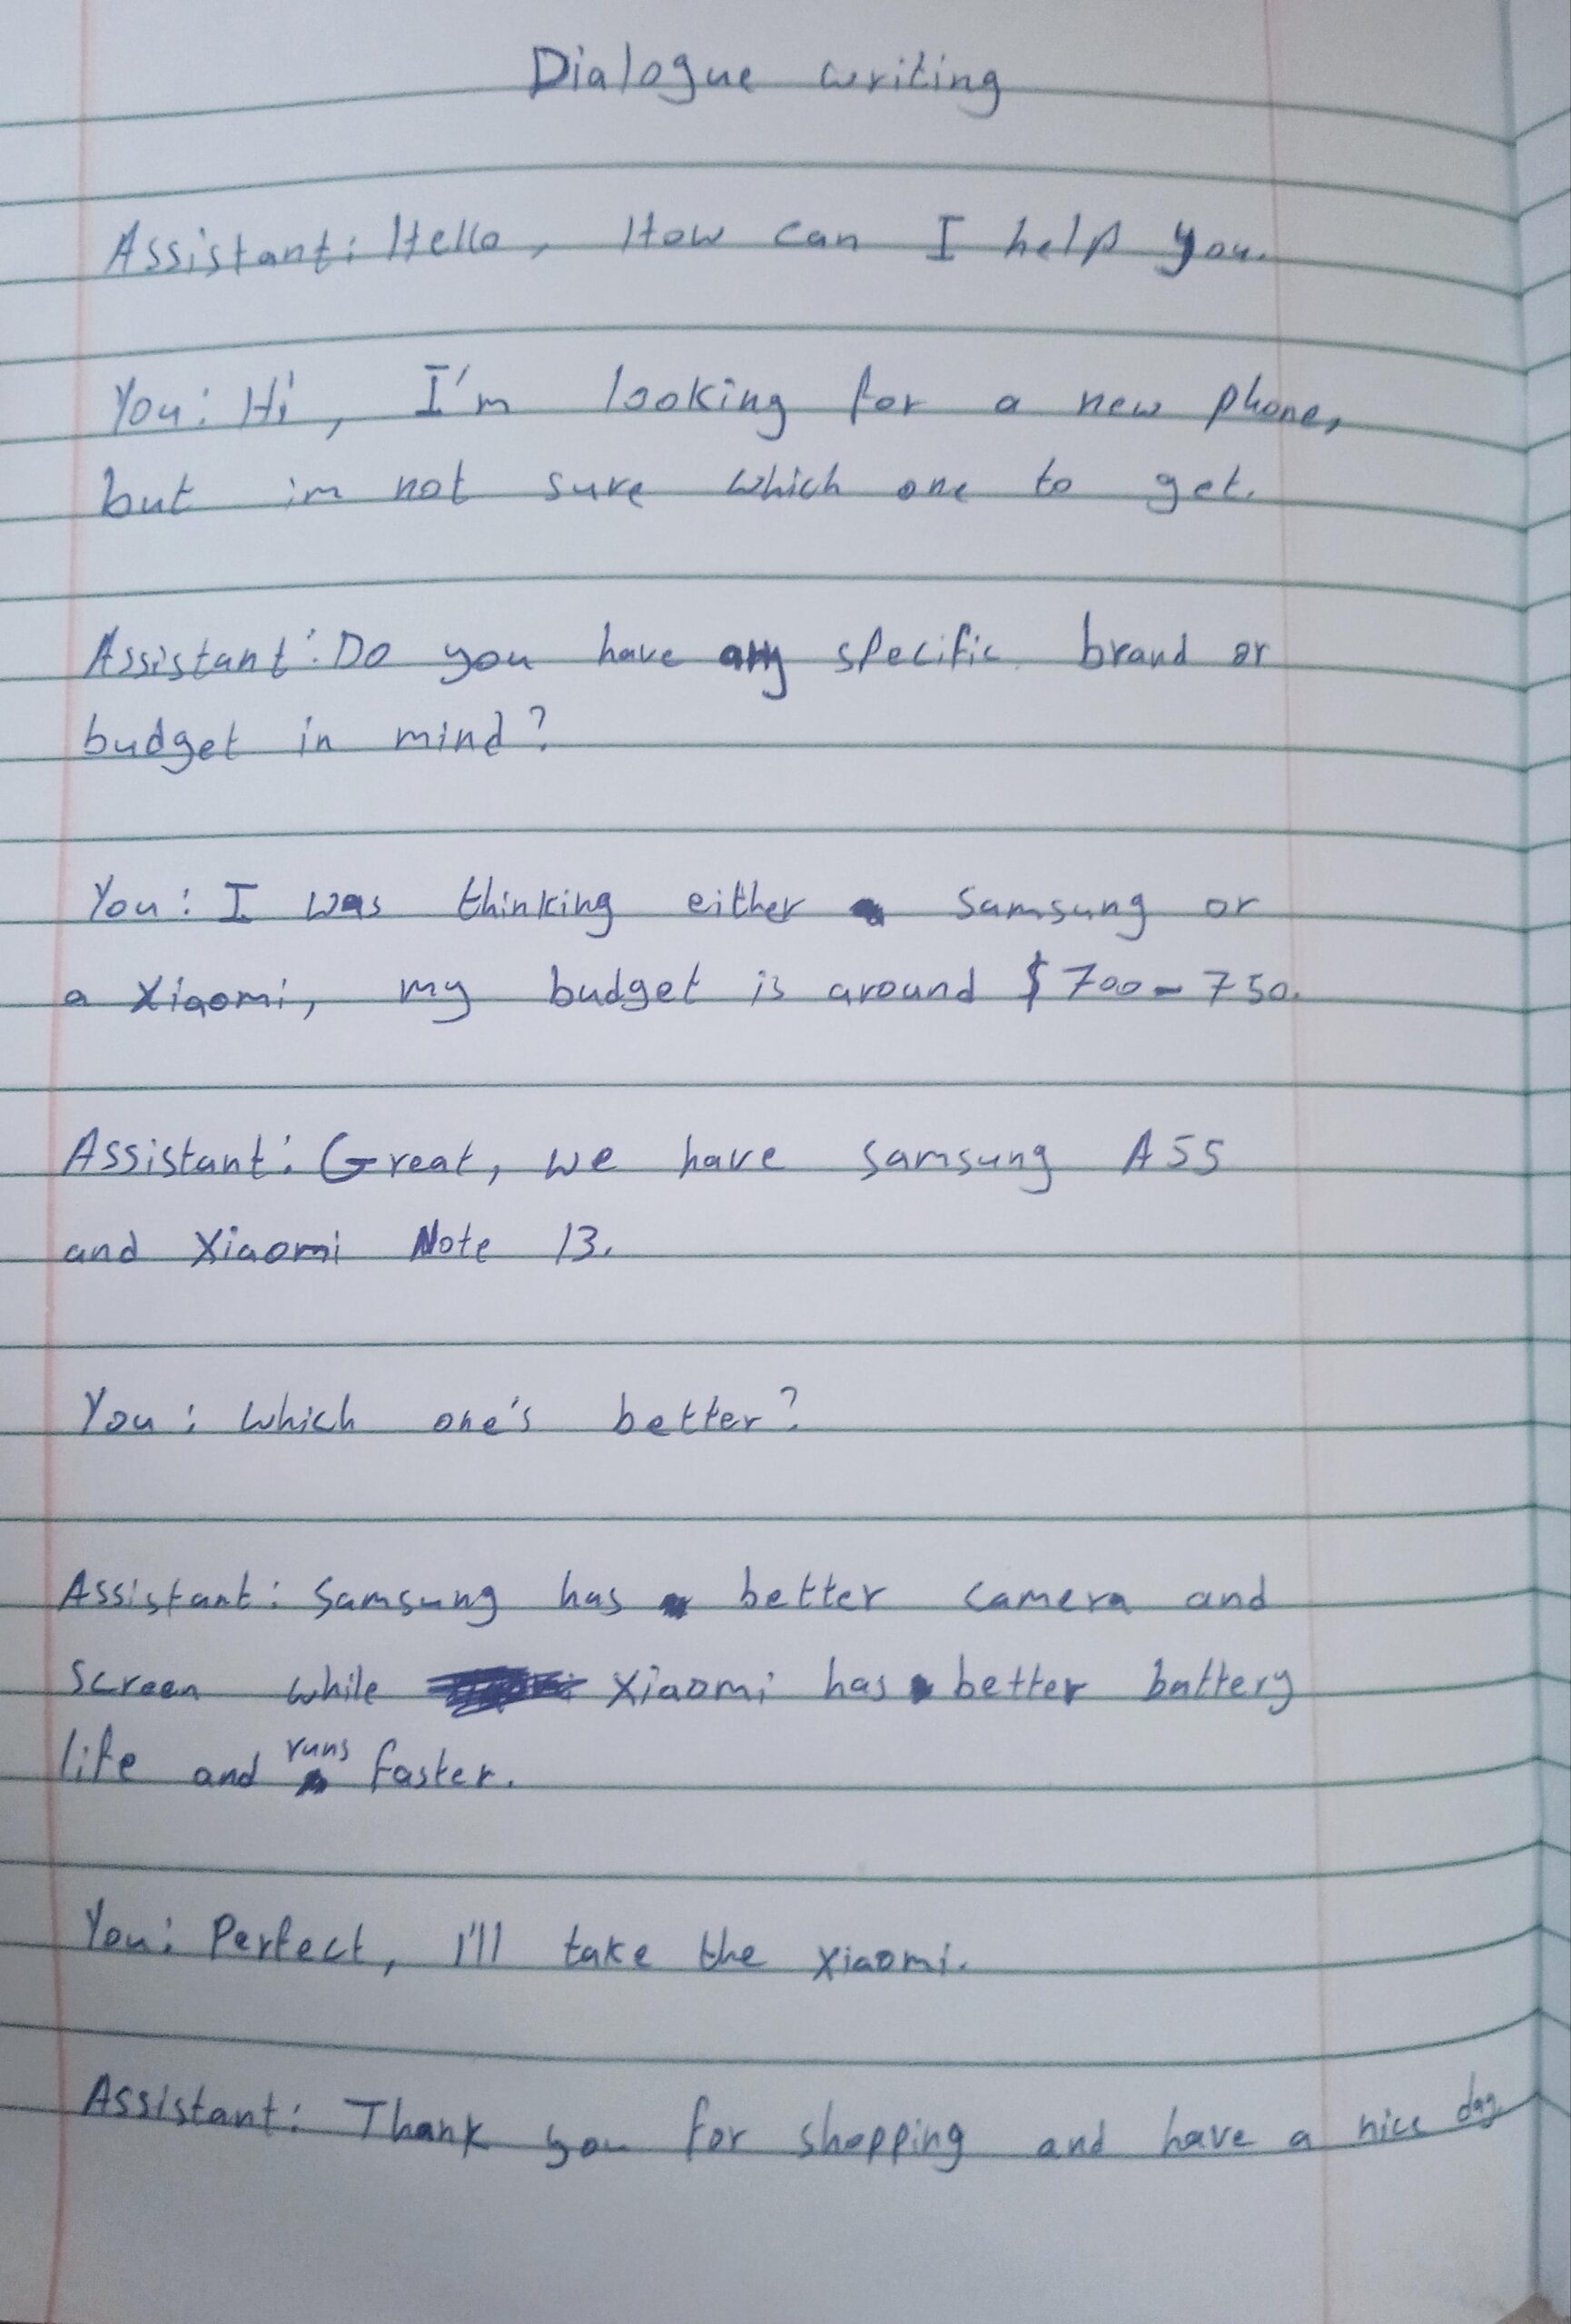 Dialogue writing
Assistant: Hello, How can I help you.
You: Hi, I'm looking for a new phone,
but im not sure which one to get.
Assistant: Do you have any specific brand or
budget in mind?
You: I was thinking either samsung or
a Xiaomi, my budget is around $700-750.
Assistant: Great, we have samsung A55
and Xiaomi Note 13.
You: Which one's better?
Assistant: Samsung has better camera and
screen while Xiaomi has better battery
life and runs faster.
You: Perfect, I'll take the Xiaomi.
Assistant: Thank you for shopping and have a nice day.